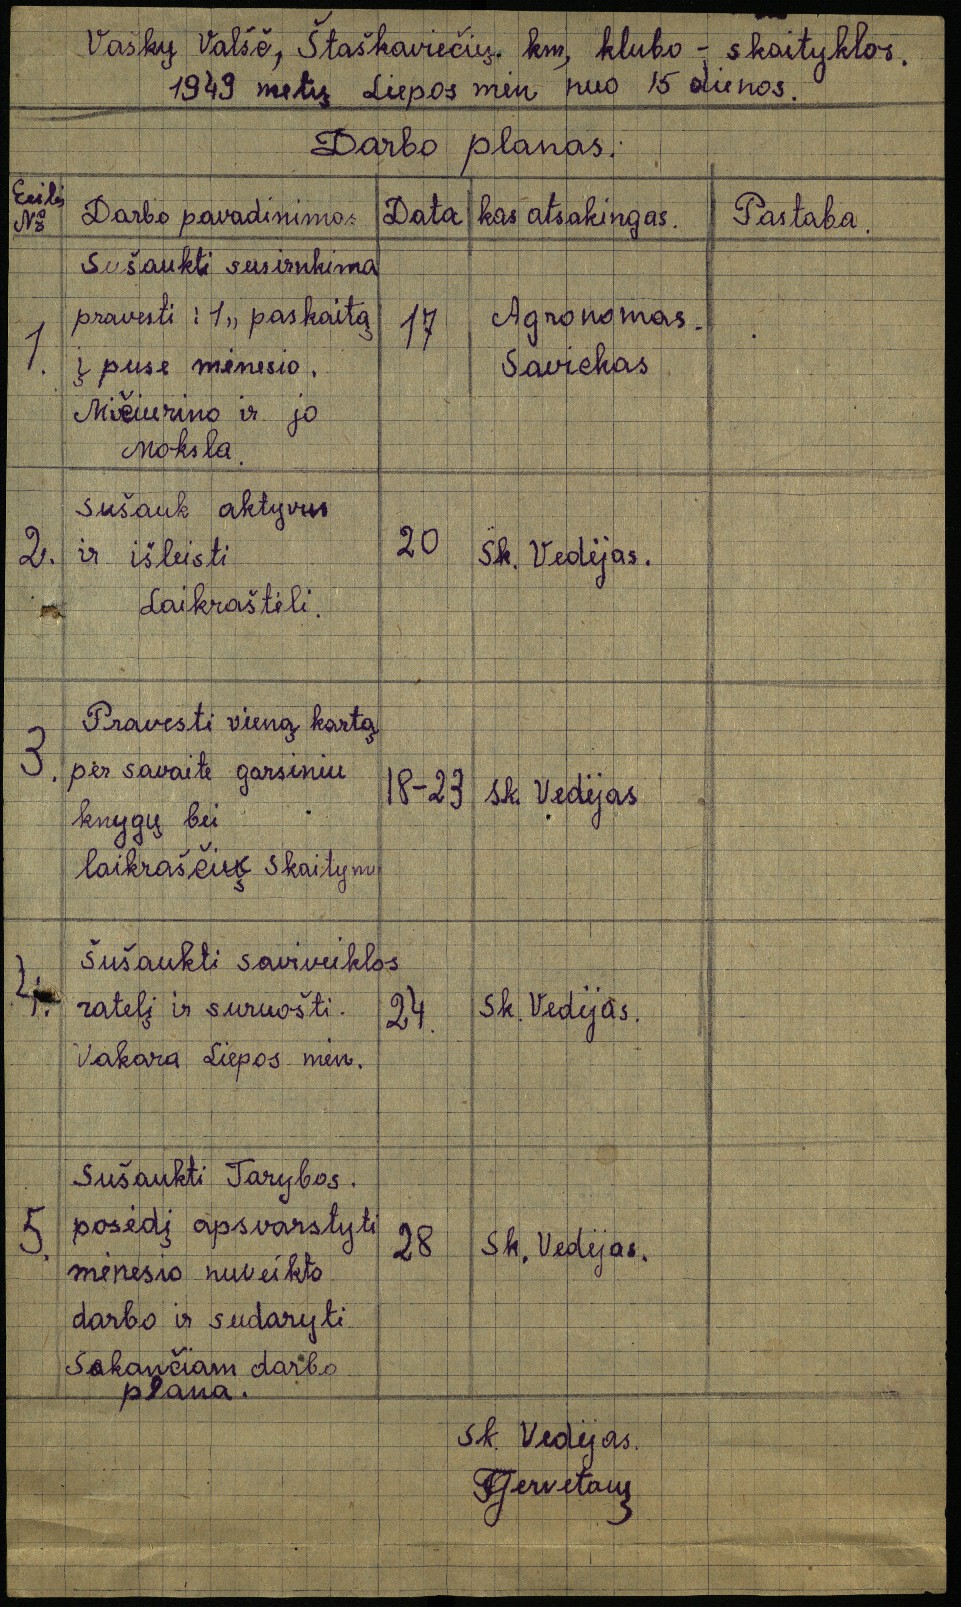 Vašky Valšč, Štaškaviečių. km, klubo - skaityklos.
1949 metų Liepos mėn nuo 15 dienos.
Darbo planas.
Eilės № Darbo pavadinimas Data kas atsakingas. Pastaba.
Sušaukti susirinkima
pravesti : 1„ paskaitą
į puse mėnesio.
Mičiurino ir jo
Moksla.
1. 17 Agronomas.
Savickas
sušauk aktyvus
2. ir išleisti 20 Sk. Vedėjas.
Laikraštėli.
Pravesti vieną kartą
3. per savaite garsiniu 18-23 sk. Vedėjas
knygų bei
laikraščių skaitymu
Sušaukti saviveiklos
4. ratelį ir suruošti. 24. Sk. Vedėjas.
Vakara Liepos mėn.
Sušaukti Tarybos.
5. posėdį apsvarstyti 28 Sk. Vedėjas.
mėnesio nuveikto
darbo ir sudaryti
Sekančiam darbo
plana.
Sk. Vedėjas.